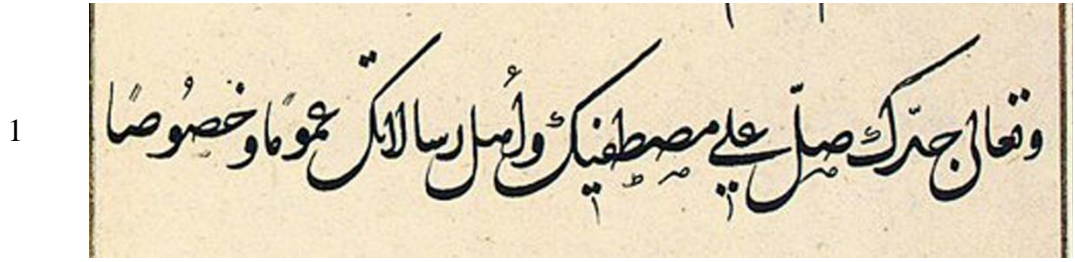 1
وتعالى جدّك صلّ علي مصطفيك وأهل رسالاتك عمومًا وخصُوصًا